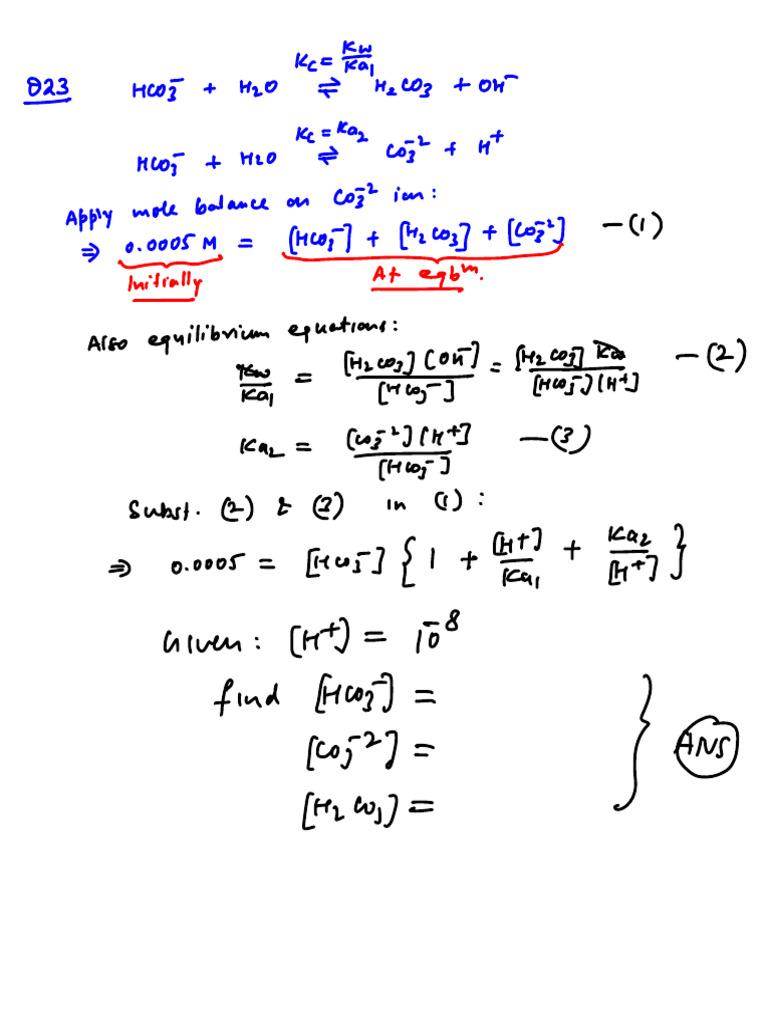 Q23 HCO3⁻ + H2O ⇌ H2CO3 + OH⁻ Kc = Kw/Ka1
HCO3⁻ + H2O ⇌ CO3⁻² + H⁺ Kc = Ka2
Apply mole balance on CO3⁻² ion:
⇒ 0.0005 M = [HCO3⁻] + [H2CO3] + [CO3⁻²] —(1)
Initially At eqbᵐ.
Also equilibrium equations:
Kw/Ka1 = [H2CO3][OH⁻]/[HCO3⁻] = [H2CO3] Kw/[HCO3⁻][H⁺] —(2)
Ka2 = [CO3⁻²][H⁺]/[HCO3⁻] —(3)
Subst. (2) & (3) in (1):
⇒ 0.0005 = [HCO3⁻] { 1 + [H⁺]/Ka1 + Ka2/[H⁺] }
Given: [H⁺] = 10⁻⁸
find [HCO3⁻] =
[CO3⁻²] = } ANS
[H2CO3] =